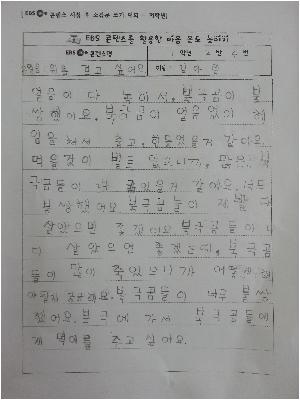 EBS 콘텐츠 시청 후 소감문 쓰기 대회 - 저학년
EBS 콘텐츠를 활용한 마음 온도 높이기
EBS 콘텐츠명
얼음 위를 걷고 싶어요 이름
얼음이 다 녹아서, 북극곰이 불
쌍했어요. 북극곰이 얼음없이 헤
엄을 쳐서 춥고, 힘들었을거 같아요.
먹을것이 별로 없으니까, 많은 북
국곰들이 배 고팠을거 같아요. 너무
불쌍했어요. 북극곰들이 제발 다
살았으면 좋겠어요. 북극곰들이 다
다 살았으면 좋겠는데, 북극곰
들이 많이 죽었으니까 어떻게 해
야될지 궁금해요. 북극곰들이 너무 불쌍
했어요. 북극에 가서 북극곰들에
게 먹이를 주고 싶어요.